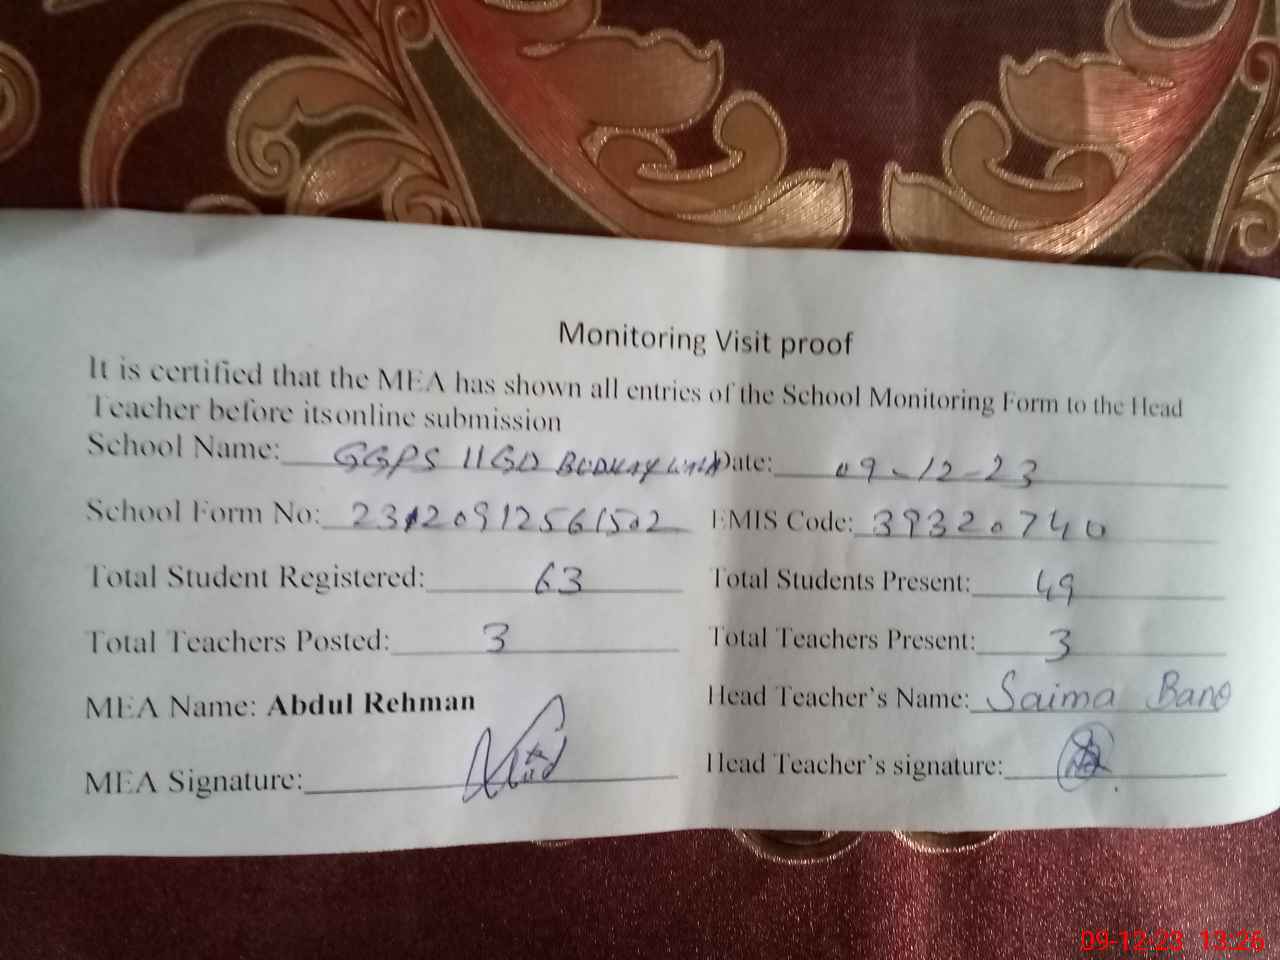 Monitoring Visit proof
It is certified that the MEA has shown all entries of the School Monitoring Form to the Head
Teacher before itsonline submission
School Name: GGPS 11GD BUDHAY WALA Date: 09-12-23
School Form No: 23120912561502 EMIS Code: 39320740
Total Student Registered: 63 Total Students Present: 49
Total Teachers Posted: 3 Total Teachers Present: 3
MEA Name: Abdul Rehman Head Teacher's Name: Saima Bano
MEA Signature: Head Teacher's signature:
09-12-23 13:26